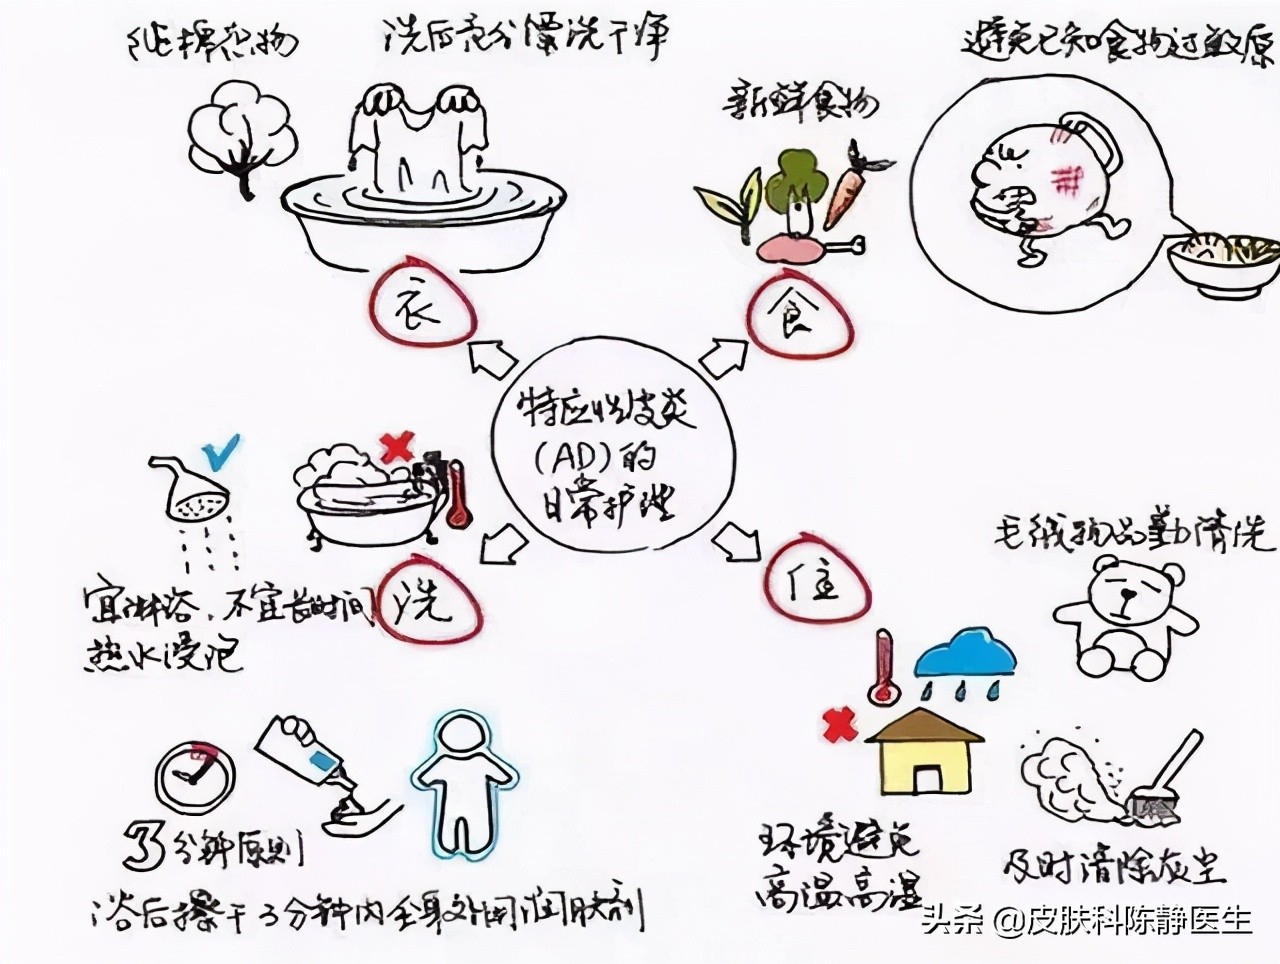 纯棉衣物
洗后充分漂洗干净
新鲜食物
避免已知食物过敏原
衣
食
特应性皮炎
(AD)的
日常护理
洗
住
宜淋浴，不宜长时间
热水浸泡
毛绒物品勤清洗
3分钟原则
浴后擦干3分钟内全身外用润肤剂
环境避免
高温高湿
及时清除灰尘
头条 @皮肤科陈静医生